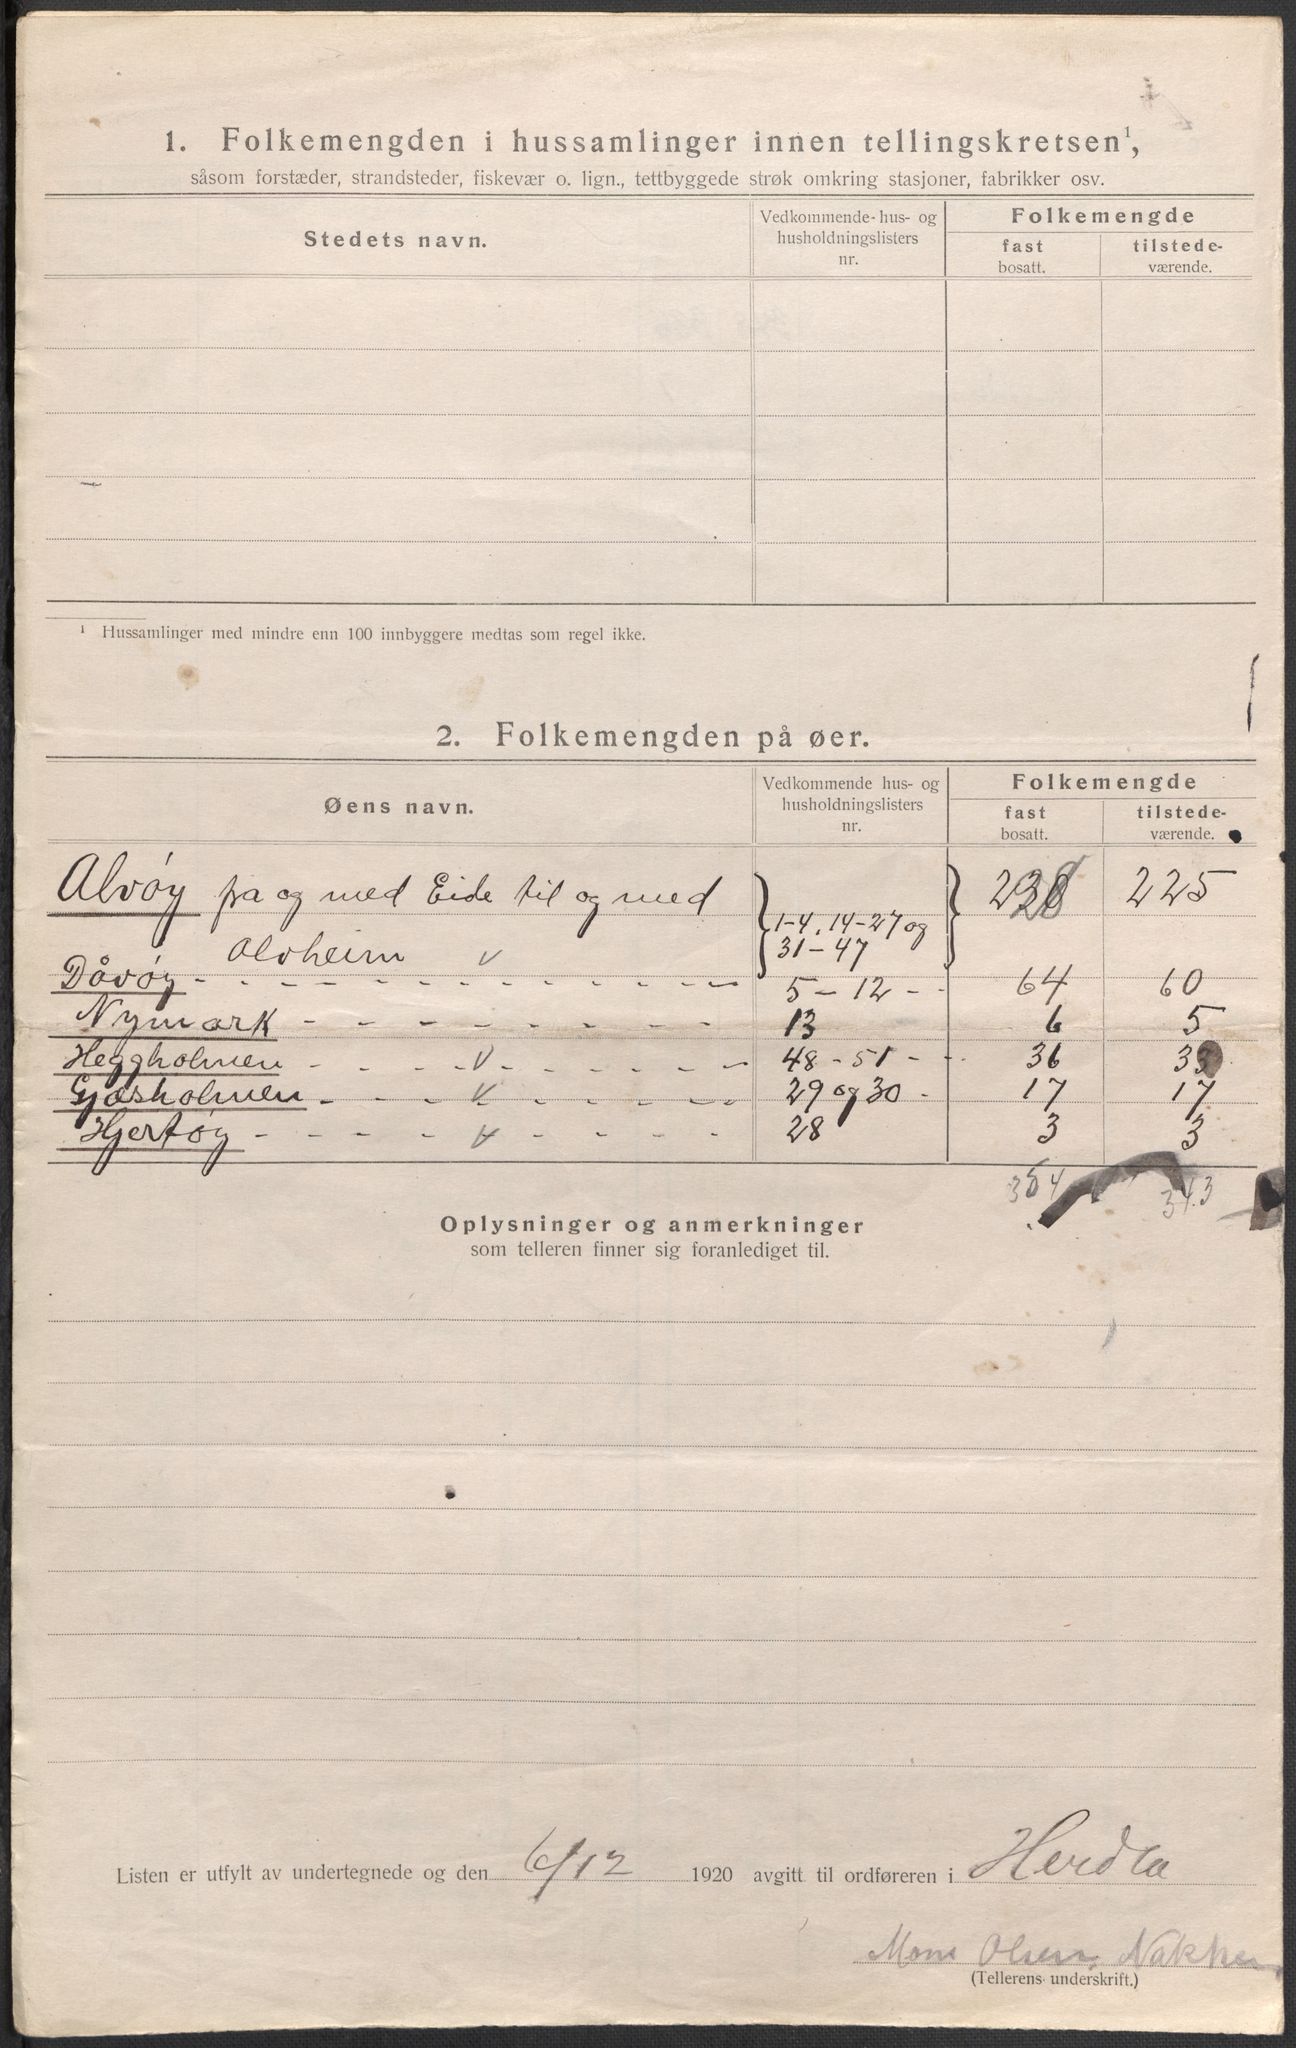 1. Folkemengden i hussamlinger innen tellingskretsen¹,
såsom forstæder, strandsteder, fiskevær o. lign., tettbyggede strøk omkring stasjoner, fabrikker osv.
Stedets navn.
Vedkommende hus- og husholdningslisters nr.
Folkemengde
fast bosatt.
tilstede-værende.
¹ Hussamlinger med mindre enn 100 innbyggere medtas som regel ikke.
2. Folkemengden på øer.
Øens navn.
Vedkommende hus- og husholdningslisters nr.
Folkemengde
fast bosatt.
tilstede-værende.
Alvøy fra og med Eide til og med 1-4, 14-27 og 225
Alvheim 31-47
Dåvøy 5-12 64 60
Nymark 13 6 5
Heggholmen 48-51 36 33
Gjøsholmen 29 og 30 17 17
Hjertøy 28 3 3
354 343
Oplysninger og anmerkninger
som telleren finner sig foranlediget til.
Listen er utfylt av undertegnede og den 6/12 1920 avgitt til ordføreren i Herdla
Mons Olsen Nakken
(Tellerens underskrift.)